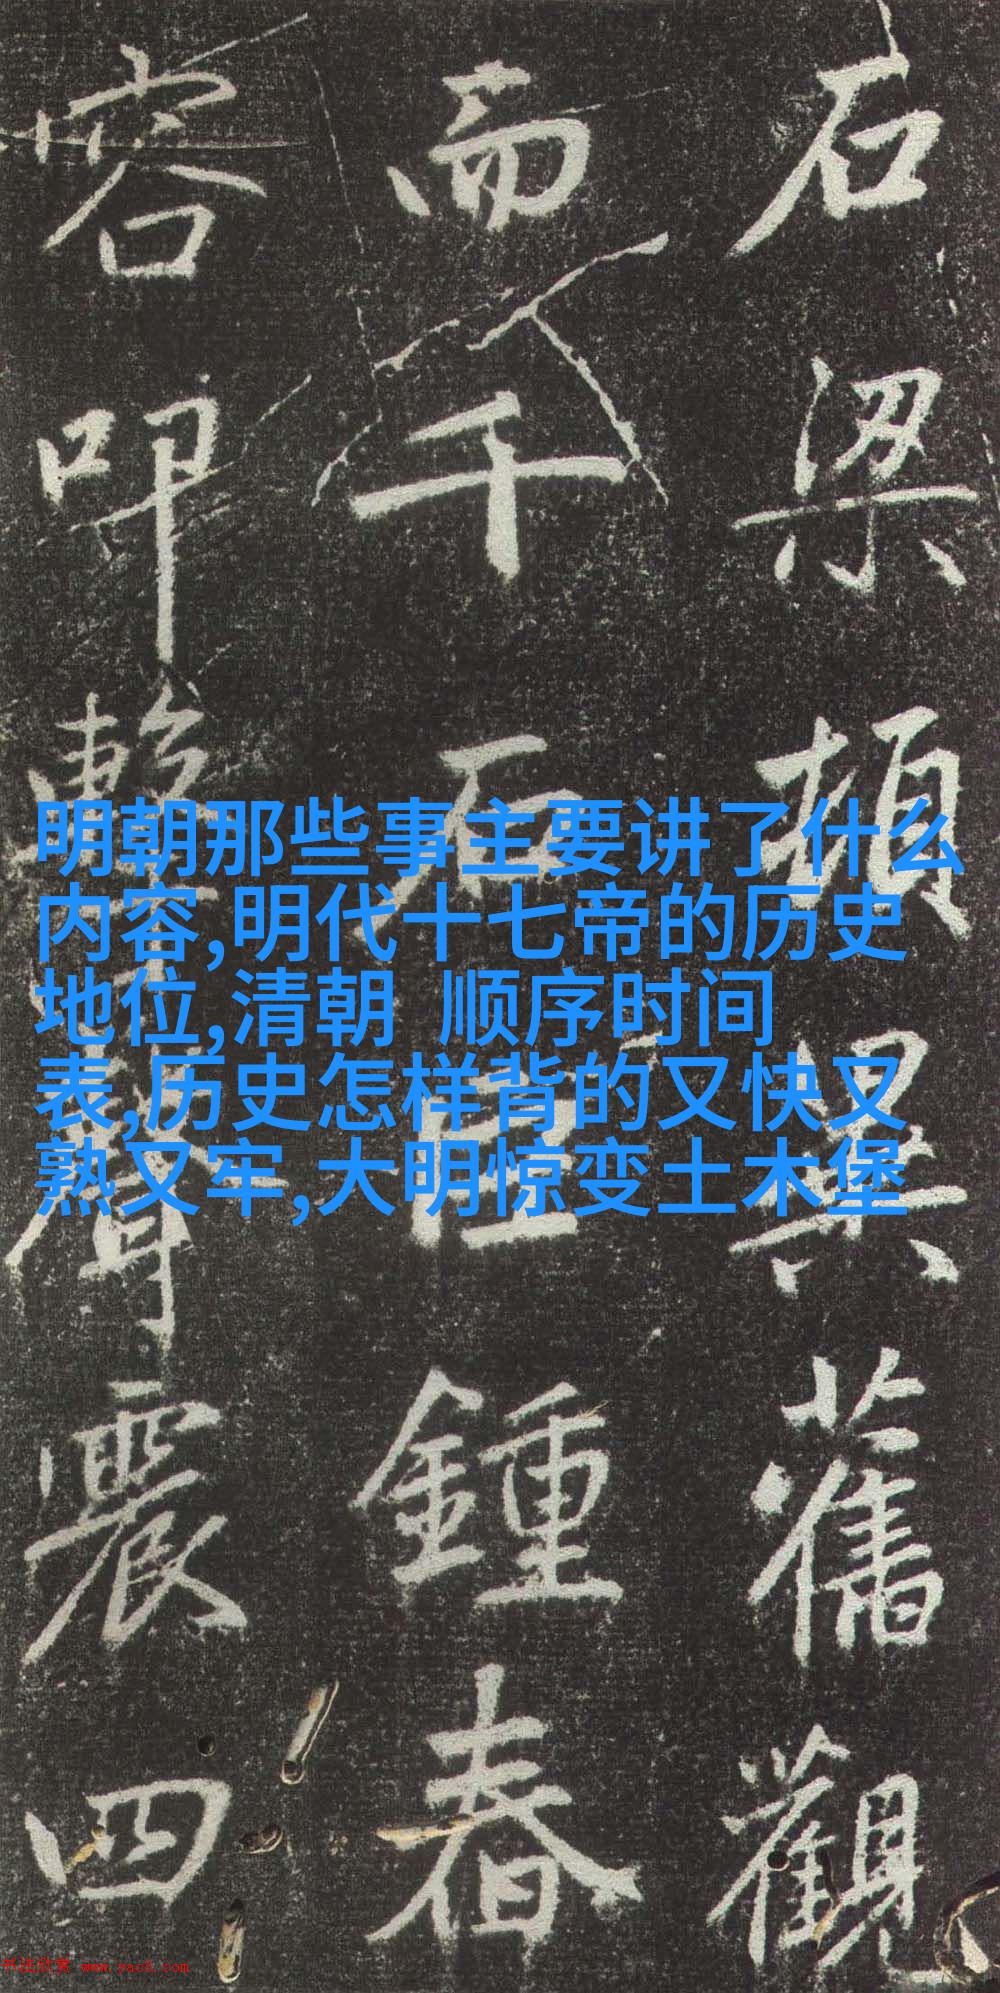 石梁頓異舊觀
而千石巨鍾春
容叩擊聲震四
明朝那些事主要讲了什么
内容,明代十七帝的历史
地位,清朝 顺序时间
表,历史怎样背的又快又
熟又牢,大明惊变土木堡
书法欣赏 www.yac8.com